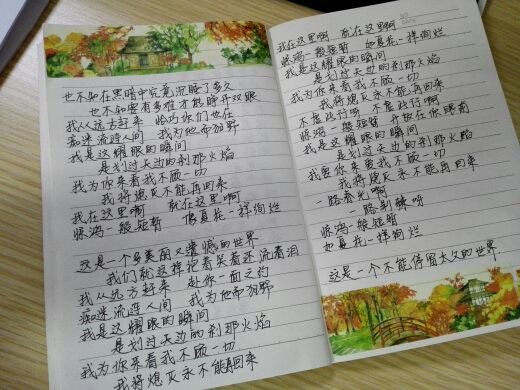 也不知在黑暗中究竟沉睡了多久
也不知要有多难才能睁开双眼
我从远方赶来 恰巧你们也在
痴迷流连人间 我为他而狂野
我是这耀眼的瞬间
是划过天边的刹那火焰
我为你来看我不顾一切
我将熄灭永不能再回来
我在这里啊 就在这里啊
惊鸿一般短暂 像夏花一样绚烂
这是一个多美丽又遗憾的世界
我们就这样抱着笑着还流着泪
我从远方赶来 赴你一面之约
痴迷流连人间 我为他而狂野
我是这耀眼的瞬间
是划过天边的刹那火焰
我为你来看我不顾一切
我将熄灭永不能再回来
我在这里啊 就在这里啊
惊鸿一般短暂 如夏花一样绚烂
我是这耀眼的瞬间
是划过天边的刹那火焰
我为你来看我不顾一切
我将熄灭永不能再回来
不虚此行啊 不虚此行啊
惊鸿一般短暂 开放在你眼前
我是这耀眼的瞬间
是划过天边的刹那火焰
我要你来爱我不顾一切
我将熄灭永不能再回来
一路春光啊
一路荆棘呀
惊鸿一般短暂
如夏花一样绚烂
这是一个不能停留太久的世界